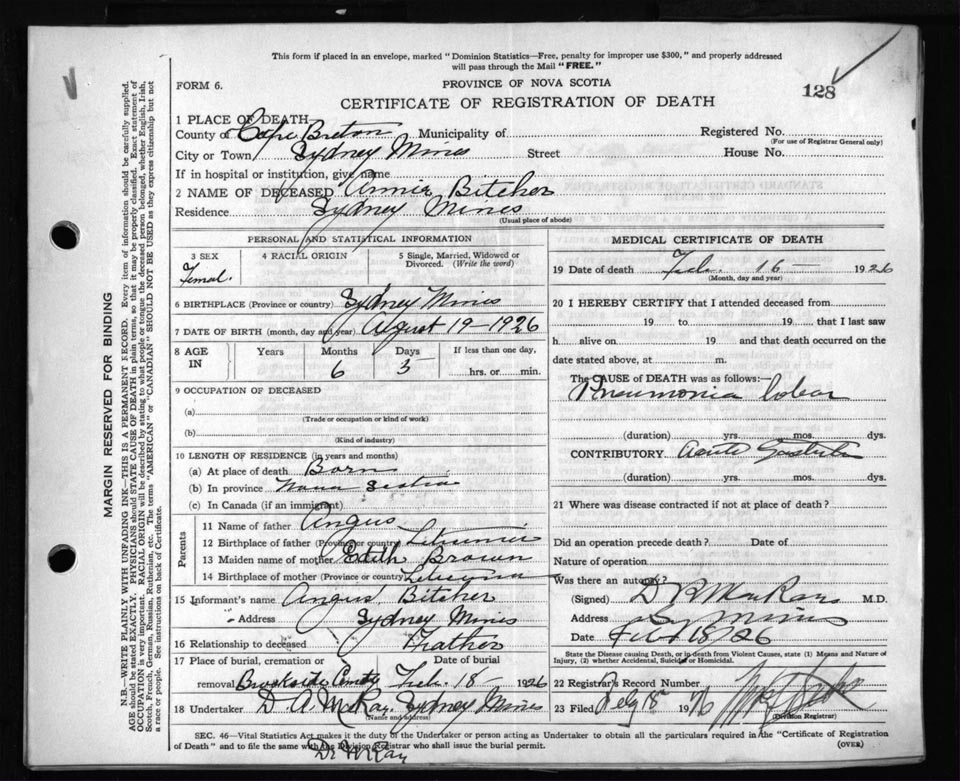 This form if placed in an envelope, marked "Dominion Statistics—Free, penalty for improper use $300," and properly addressed
will pass through the Mail "FREE."
FORM 6.
PROVINCE OF NOVA SCOTIA
128
CERTIFICATE OF REGISTRATION OF DEATH
1 PLACE OF DEATH
County of Cape Breton Municipality of Registered No.
(For use of Registrar General only)
City or Town Sydney Mines Street House No.
If in hospital or institution, give name
2 NAME OF DECEASED Annie Bitcher
Residence Sydney Mines
(Usual place of abode)
PERSONAL AND STATISTICAL INFORMATION
3 SEX 4 RACIAL ORIGIN 5 Single, Married, Widowed or Divorced. (Write the word)
Femal.
6 BIRTHPLACE (Province or country) Sydney Mines
7 DATE OF BIRTH (month, day and year) August 19—1926
8 AGE IN Years Months Days If less than one day,
6 3 hrs. or min.
9 OCCUPATION OF DECEASED
(a)
(Trade or occupation or kind of work)
(b)
(Kind of industry)
10 LENGTH OF RESIDENCE (in years and months)
(a) At place of death Born
(b) In province Nova Scotia
(c) In Canada (if an immigrant)
Parents
11 Name of father Angus
12 Birthplace of father (Province or country)
13 Maiden name of mother Edith Brown
14 Birthplace of mother (Province or country)
15 Informant's name Angus Bitcher
" Address Sydney Mines
16 Relationship to deceased Father
17 Place of burial, cremation or Date of burial
removal Brookside Cemety Feb. 18— 1926
18 Undertaker D. A. McKay. Sydney Mines
(Name and address)
MEDICAL CERTIFICATE OF DEATH
19 Date of death Feb. 16— 1926
(Month, day and year)
20 I HEREBY CERTIFY that I attended deceased from
19 to 19 that I last saw
h alive on 19 and that death occurred on the
date stated above, at m.
The CAUSE of DEATH was as follows:—
Pneumonia lobar
(duration) yrs. mos. dys.
CONTRIBUTORY Acute
(duration) yrs. mos. dys.
21 Where was disease contracted if not at place of death?
Did an operation precede death? Date of
Nature of operation
Was there an autopsy?
(Signed) M.D.
Address Sy Mines
Date Feb 18/26
State the Disease Causing Death, or in death from Violent Causes, state (1) Means and Nature of
Injury, (2) whether Accidental, Suicidal or Homicidal.
22 Registrar's Record Number
23 Filed 19
(Division Registrar)
SEC. 46—Vital Statistics Act makes it the duty of the Undertaker or person acting as Undertaker to obtain all the particulars required in the "Certificate of Registration
of Death" and to file the same with the Division Registrar who shall issue the burial permit.
(OVER)
Dr McKay
MARGIN RESERVED FOR BINDING
N.B.—WRITE PLAINLY WITH UNFADING INK—THIS IS A PERMANENT RECORD. Every item of information should be carefully supplied.
AGE should be stated EXACTLY. PHYSICIANS should STATE CAUSE OF DEATH in plain terms, so that it may be properly classified. Exact statement of
OCCUPATION is very important. RACIAL ORIGIN will be described by stating to what people or tongue the deceased person belonged, whether English, Irish,
Scotch, French, German, Russian, Ruthenian, etc. The terms "AMERICAN" or "CANADIAN" SHOULD NOT BE USED as they express citizenship but not
a race or people. See instructions on back of Certificate.